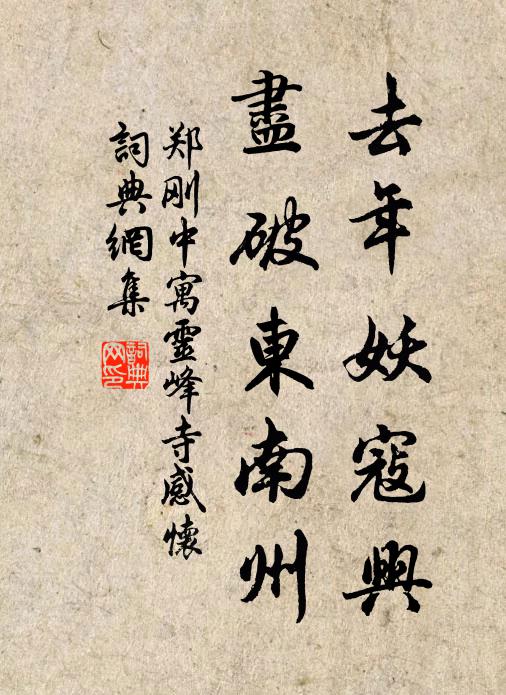 去年妖寇興
盡破東南州
郑刚中寓靈峰寺感懷
詞典網集
詞典网印